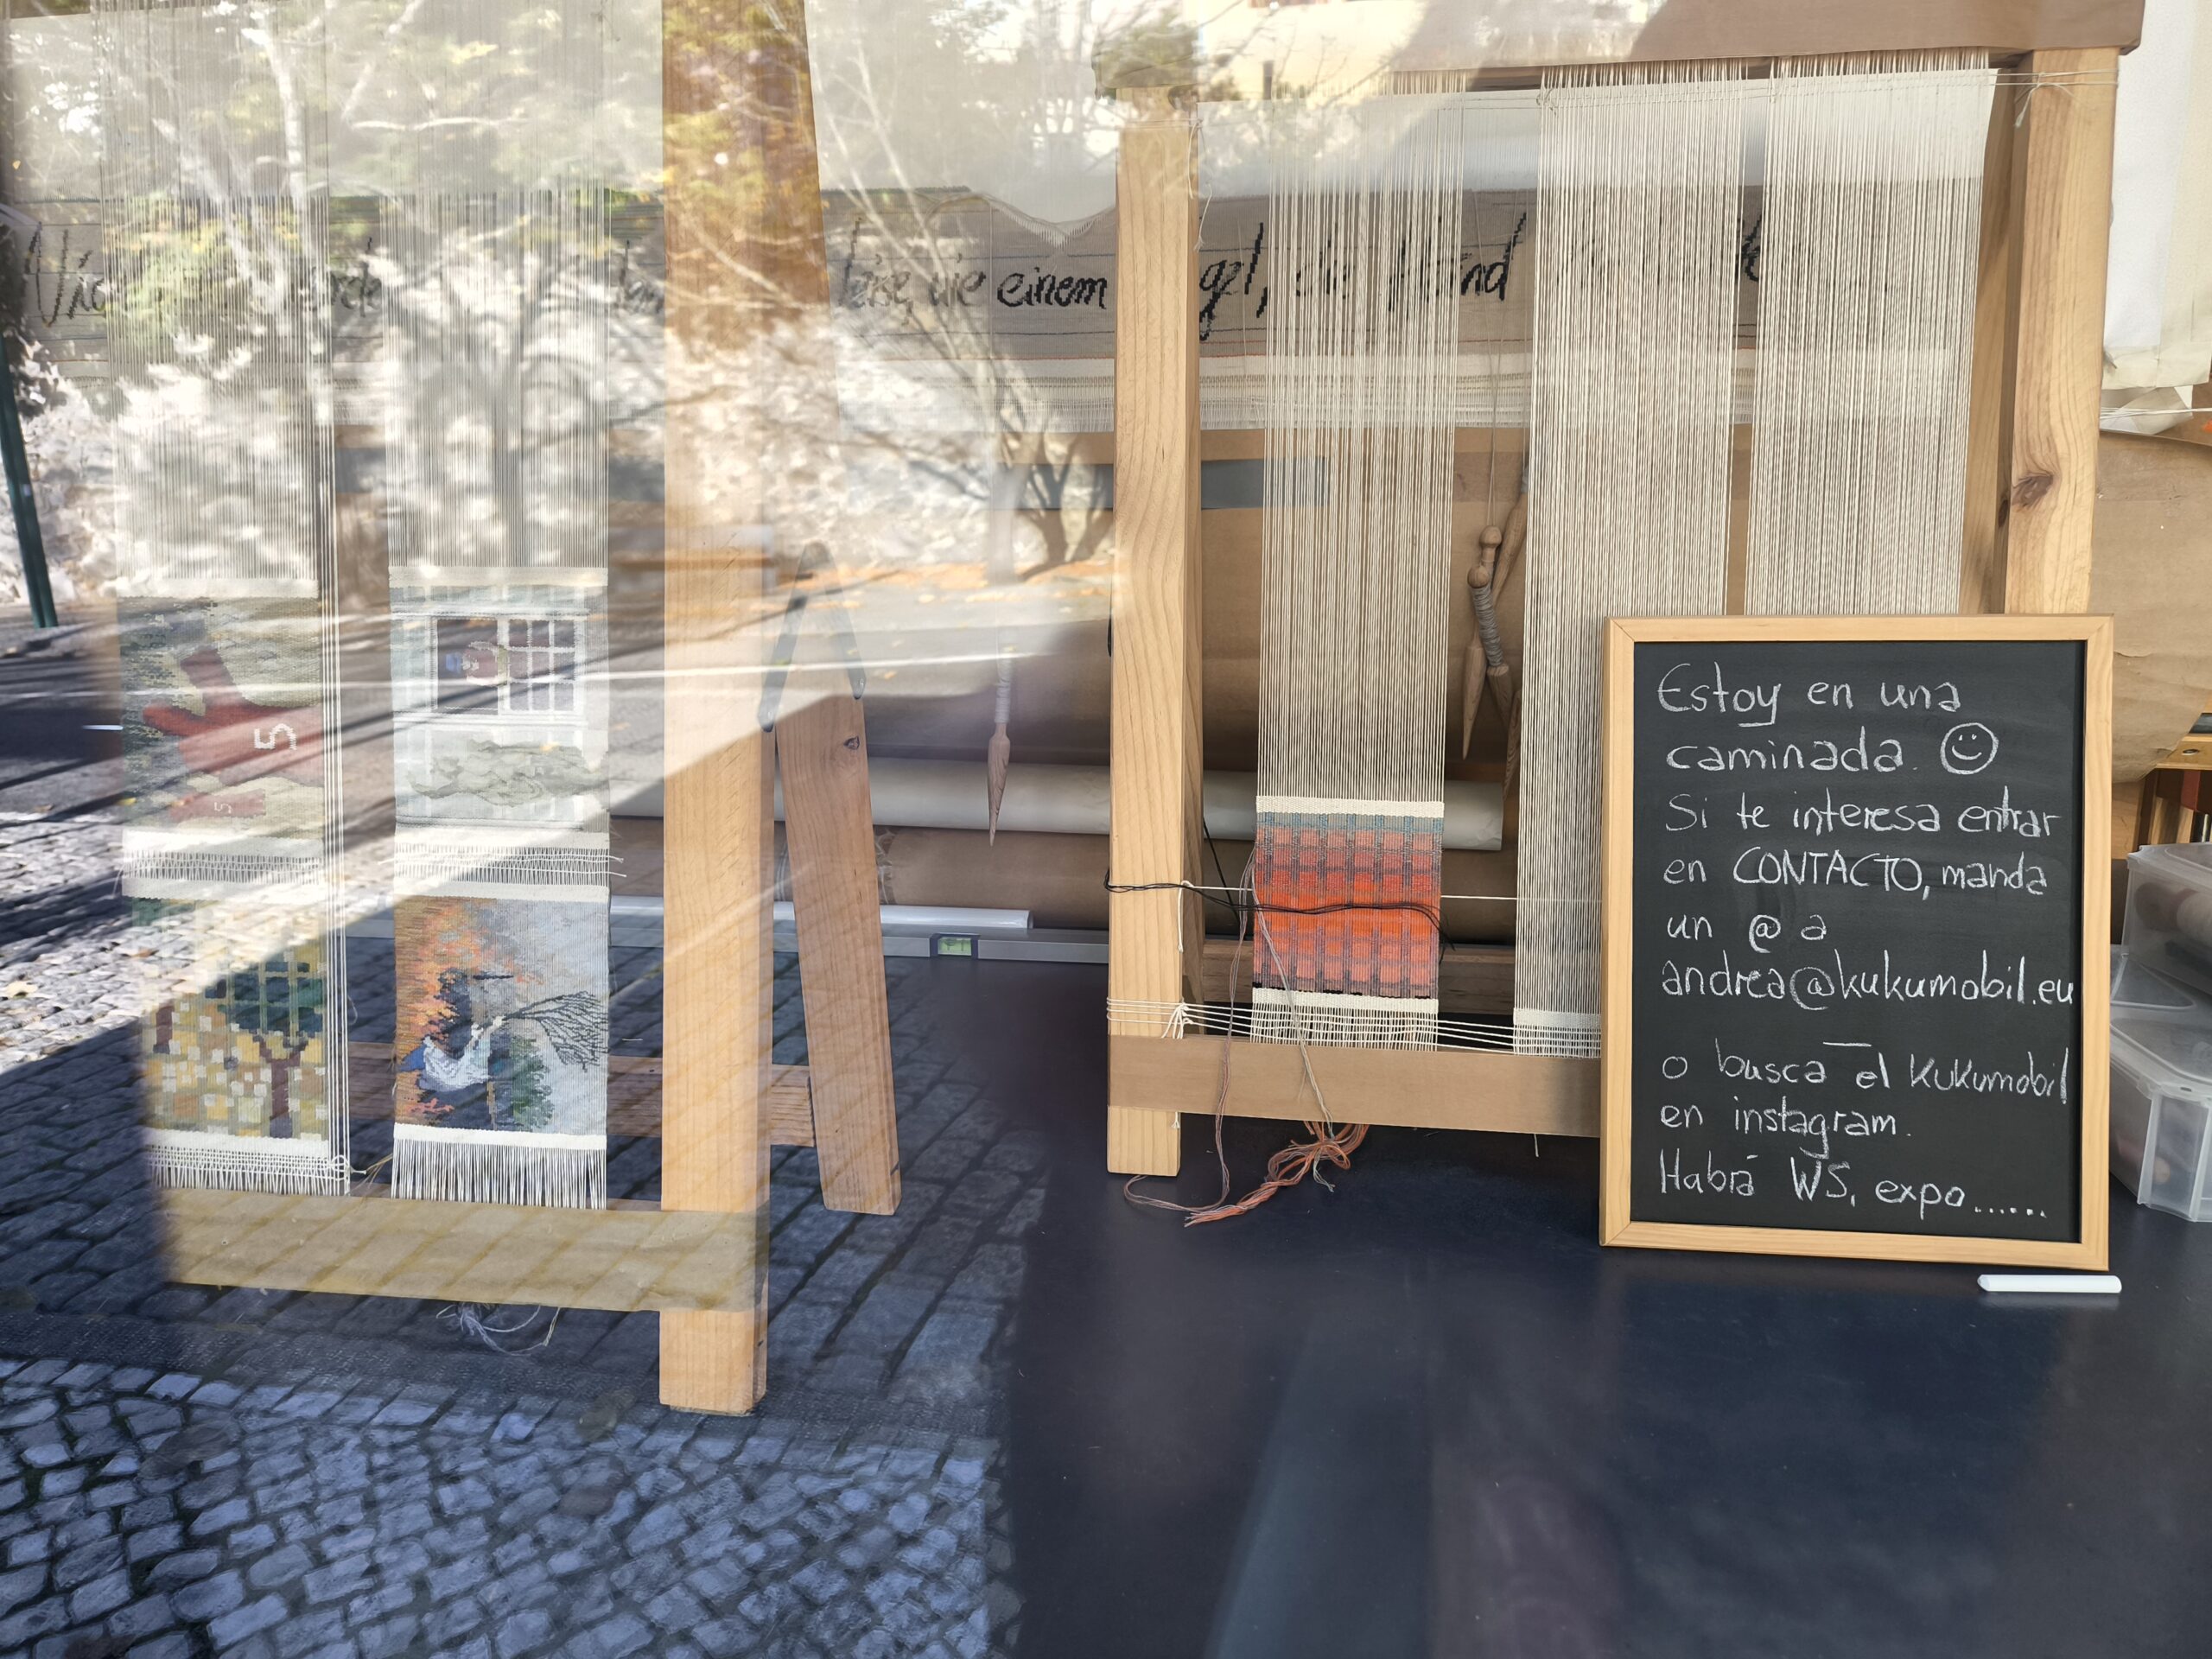 leise, wie einem die
Estoy en una
caminada. ☺
Si te interesa entrar
en CONTACTO, manda
un @ a
andrea@kukumobil.eu
o busca el kukumobil
en instagram.
Habrá WS, expo......
5
5